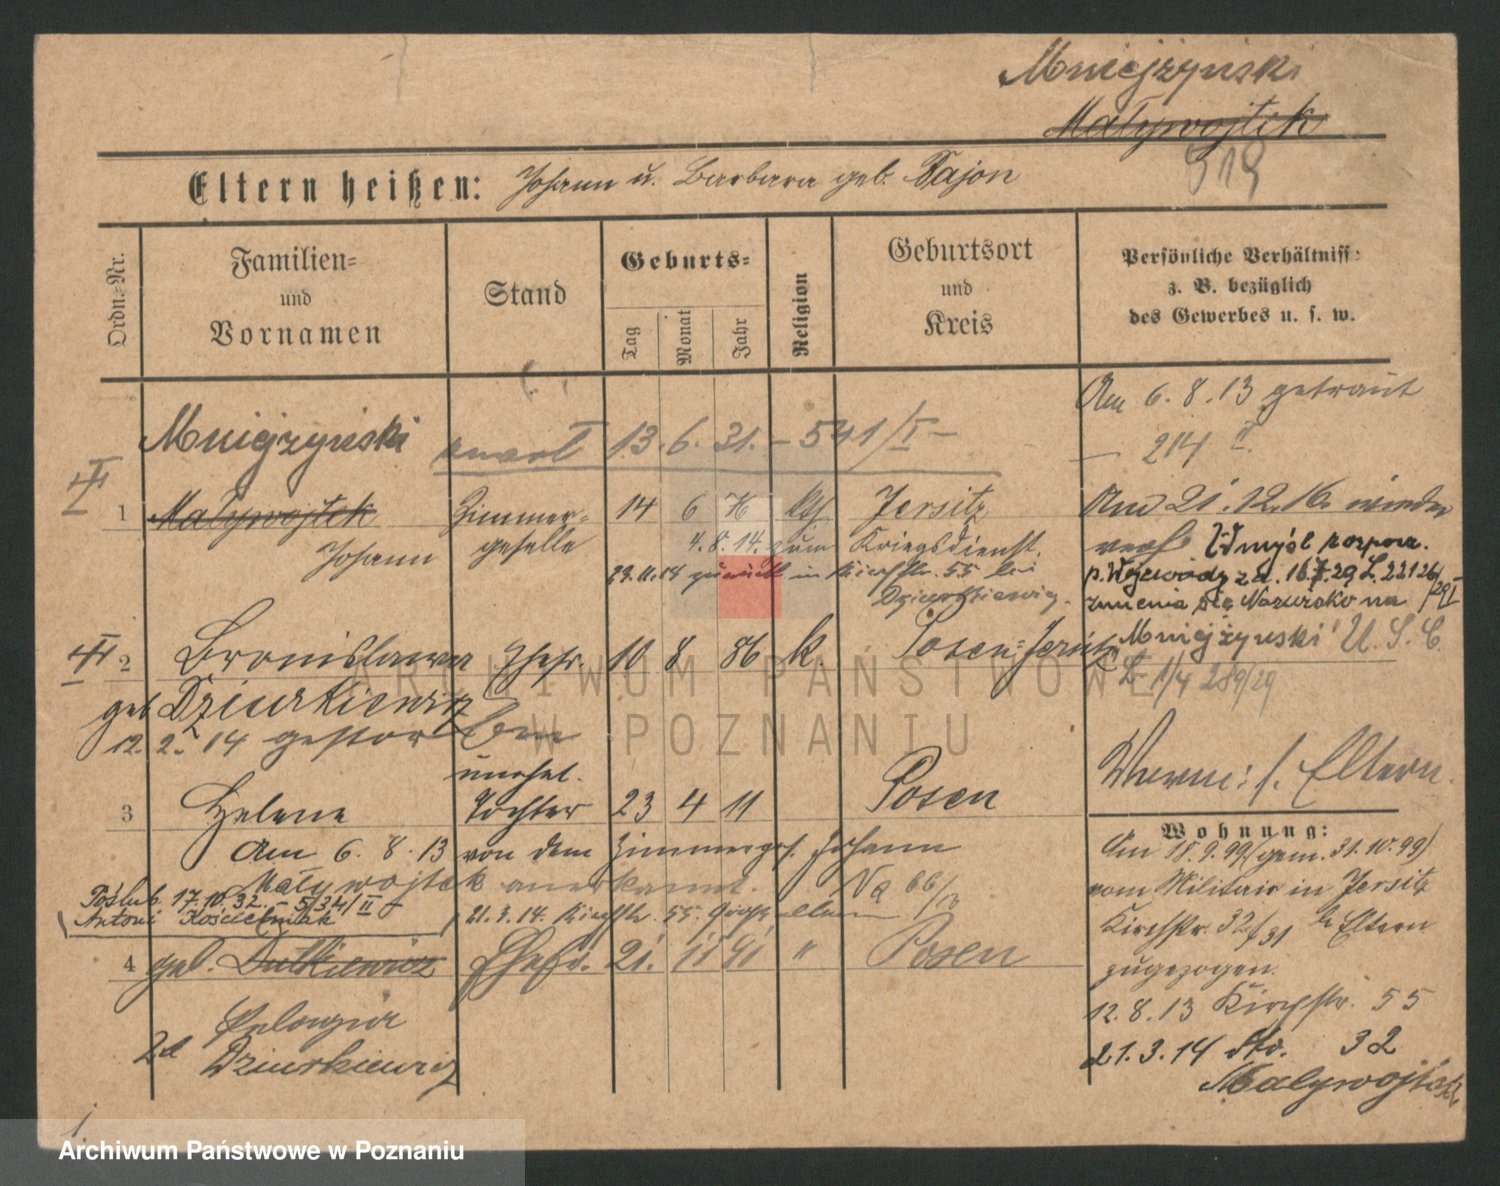 Mniejżyński
Maływojtek
919
Eltern heißen: Johann u. Barbara geb. Pajon
Ordn.-Nr.
Familien-
und
Vornamen
Stand
Geburts-
Tag
Monat
Jahr
Religion
Geburtsort
und
Kreis
Persönliche Verhältniss:
z. B. bezüglich
des Gewerbes u. s. w.
Am 6. 8. 13 getraut
214
Mniejżyński 13. 6. 31. – 541/I –
1 Maływojtek Zimmer- 14 6 76 kth Jersitz
Johann geselle 4. 8. 14. zum Kriegsdienst.
29.11.18 zurück in Kirchstr. 55 bei
Dziurkiewicz.
Am 21. 12. 16. wieder
verh. W myśl rozporz.
p. Wojewody z d. 16.7.29 L. 22126/29 I
zmienia się Nazwisko na
"Mniejżyński" U. S. C.
L. 11/4 289/29
2 Bronisława Ehefr. 10 8 86 k. Posen-Jersitz
geb Dziurkiewicz
12. 2. 14 gestorben
Verm: s. Eltern.
unehel.
3 Helene Tochter 23 4 11 Posen
Am 6. 8. 13 von dem Zimmerges. Johann
Maływojtek anerkannt.
Poślub. 17.10.32. – 5/341/II –
Antoni Kościelniak
21.3.14. Kirchstr. 55. Großeltern
4 geb. Dutkiewicz Ehefr. 21. 11 91 " Posen
Pelagia
Dziurkiewicz
Wohnung:
Am 18.9.99 (gem. 31.10.99)
vom Militair in Jersitz
Kirchstr. 32/31 b. Eltern
zugezogen.
12. 8. 13 Kirchstr. 55
21. 3. 14 Str. 32
Maływojtek
1.
ARCHIWUM PAŃSTWOWE
W POZNANIU
Archiwum Państwowe w Poznaniu